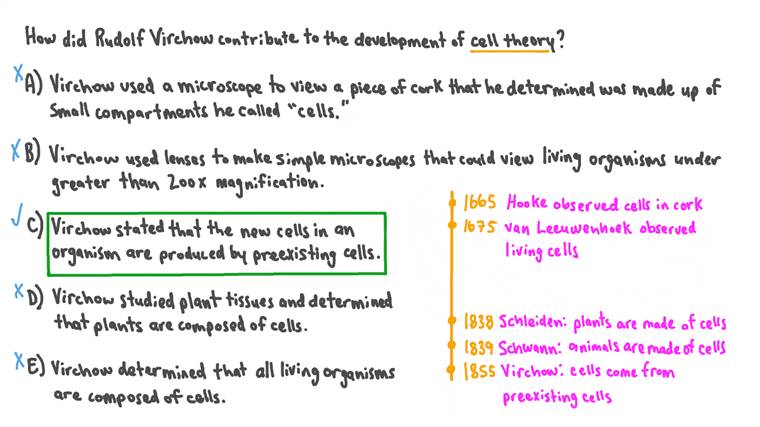 How did Rudolf Virchow contribute to the development of cell theory?
A) Virchow used a microscope to view a piece of cork that he determined was made up of
small compartments he called "cells."
B) Virchow used lenses to make simple microscopes that could view living organisms under
greater than 200x magnification.
C) Virchow stated that the new cells in an
organism are produced by preexisting cells.
D) Virchow studied plant tissues and determined
that plants are composed of cells.
E) Virchow determined that all living organisms
are composed of cells.
1665 Hooke observed cells in cork
1675 van Leeuwenhoek observed
living cells
1838 Schleiden: plants are made of cells
1839 Schwann: animals are made of cells
1855 Virchow: cells come from
preexisting cells